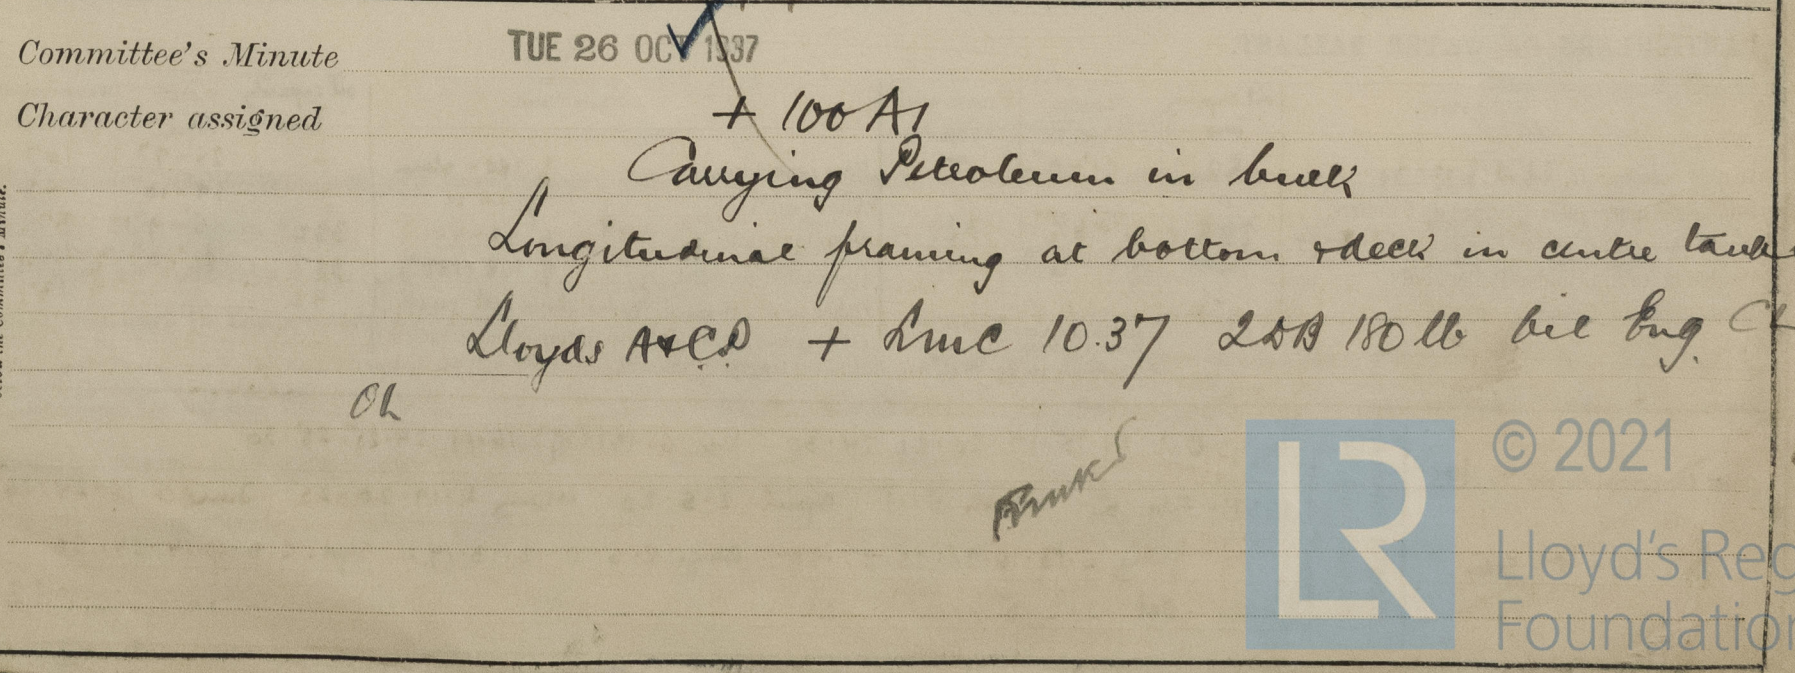 Committee's Minute TUE 26 OCT 1937
Character assigned + 100 A1
Carrying Petroleum in bulk
Longitudinal framing at bottom & deck in centre tanks
Lloyds A&CP + LMC 10.37 2DB 180 lb Oil Eng. CL
LR © 2021
Lloyd's Reg
Foundation